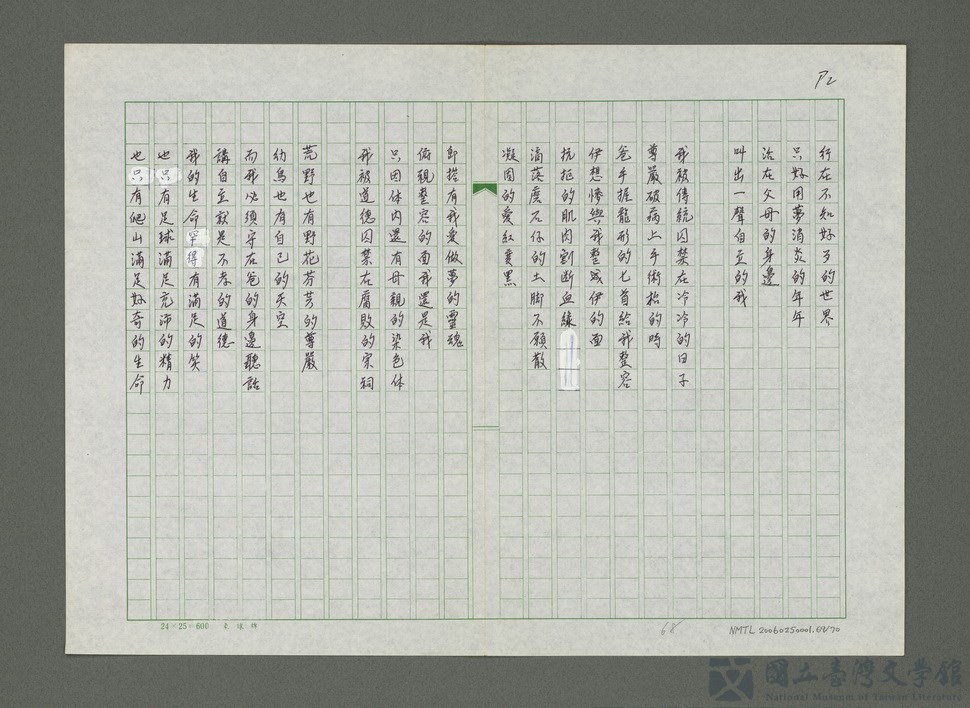 P2
行在不知好歹的世界
只好用夢消炎的年年
活在父母的身邊
叫出一聲自立的我
我被傳統囚禁在冷冷的日子
尊嚴破病上手術枱的時
爸手握龍形的匕首給我整容
伊想慘與我整成伊的面
抗拒的肌肉割斷血緣
滴落度不仔的土脚不願散
凝固的愛紅變黑
即搭有我愛做夢的靈魂
俯視整容的面我還是我
只因体内還有母親的染色体
我被道德囚禁在腐敗的宗祠
荒野也有野花芬芳的尊嚴
幼鳥也有自己的天空
而我必須守在爸的身邊聽話
講自立就是不孝的道德
我的生命罕得有滿足的笑
也只有足球滿足充沛的精力
也只有爬山滿足好奇的生命
24×25=600
68
NMTL 20060250001.68/70
國立臺灣文學館
National Museum of Taiwan Literature